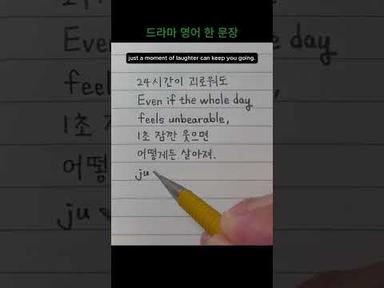 드라마 영어 한 문장
just a moment of laughter can keep you going.
24시간이 괴로워도
Even if the whole day
feels unbearable,
1초 잠깐 웃으면
어떻게든 살아져.
ju
ju